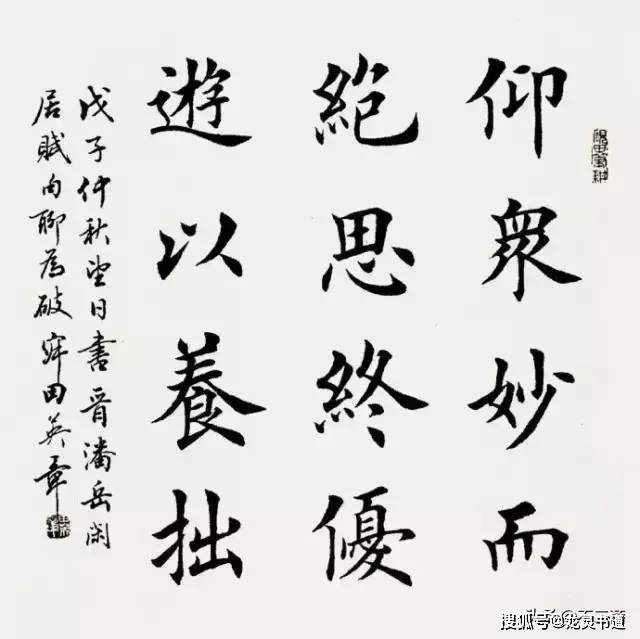 仰衆妙而
絶思終優
遊以養拙
戊子仲秋望日書晋潘岳閑
居賦句聊為破寐田英章
搜狐号@龙灵书道